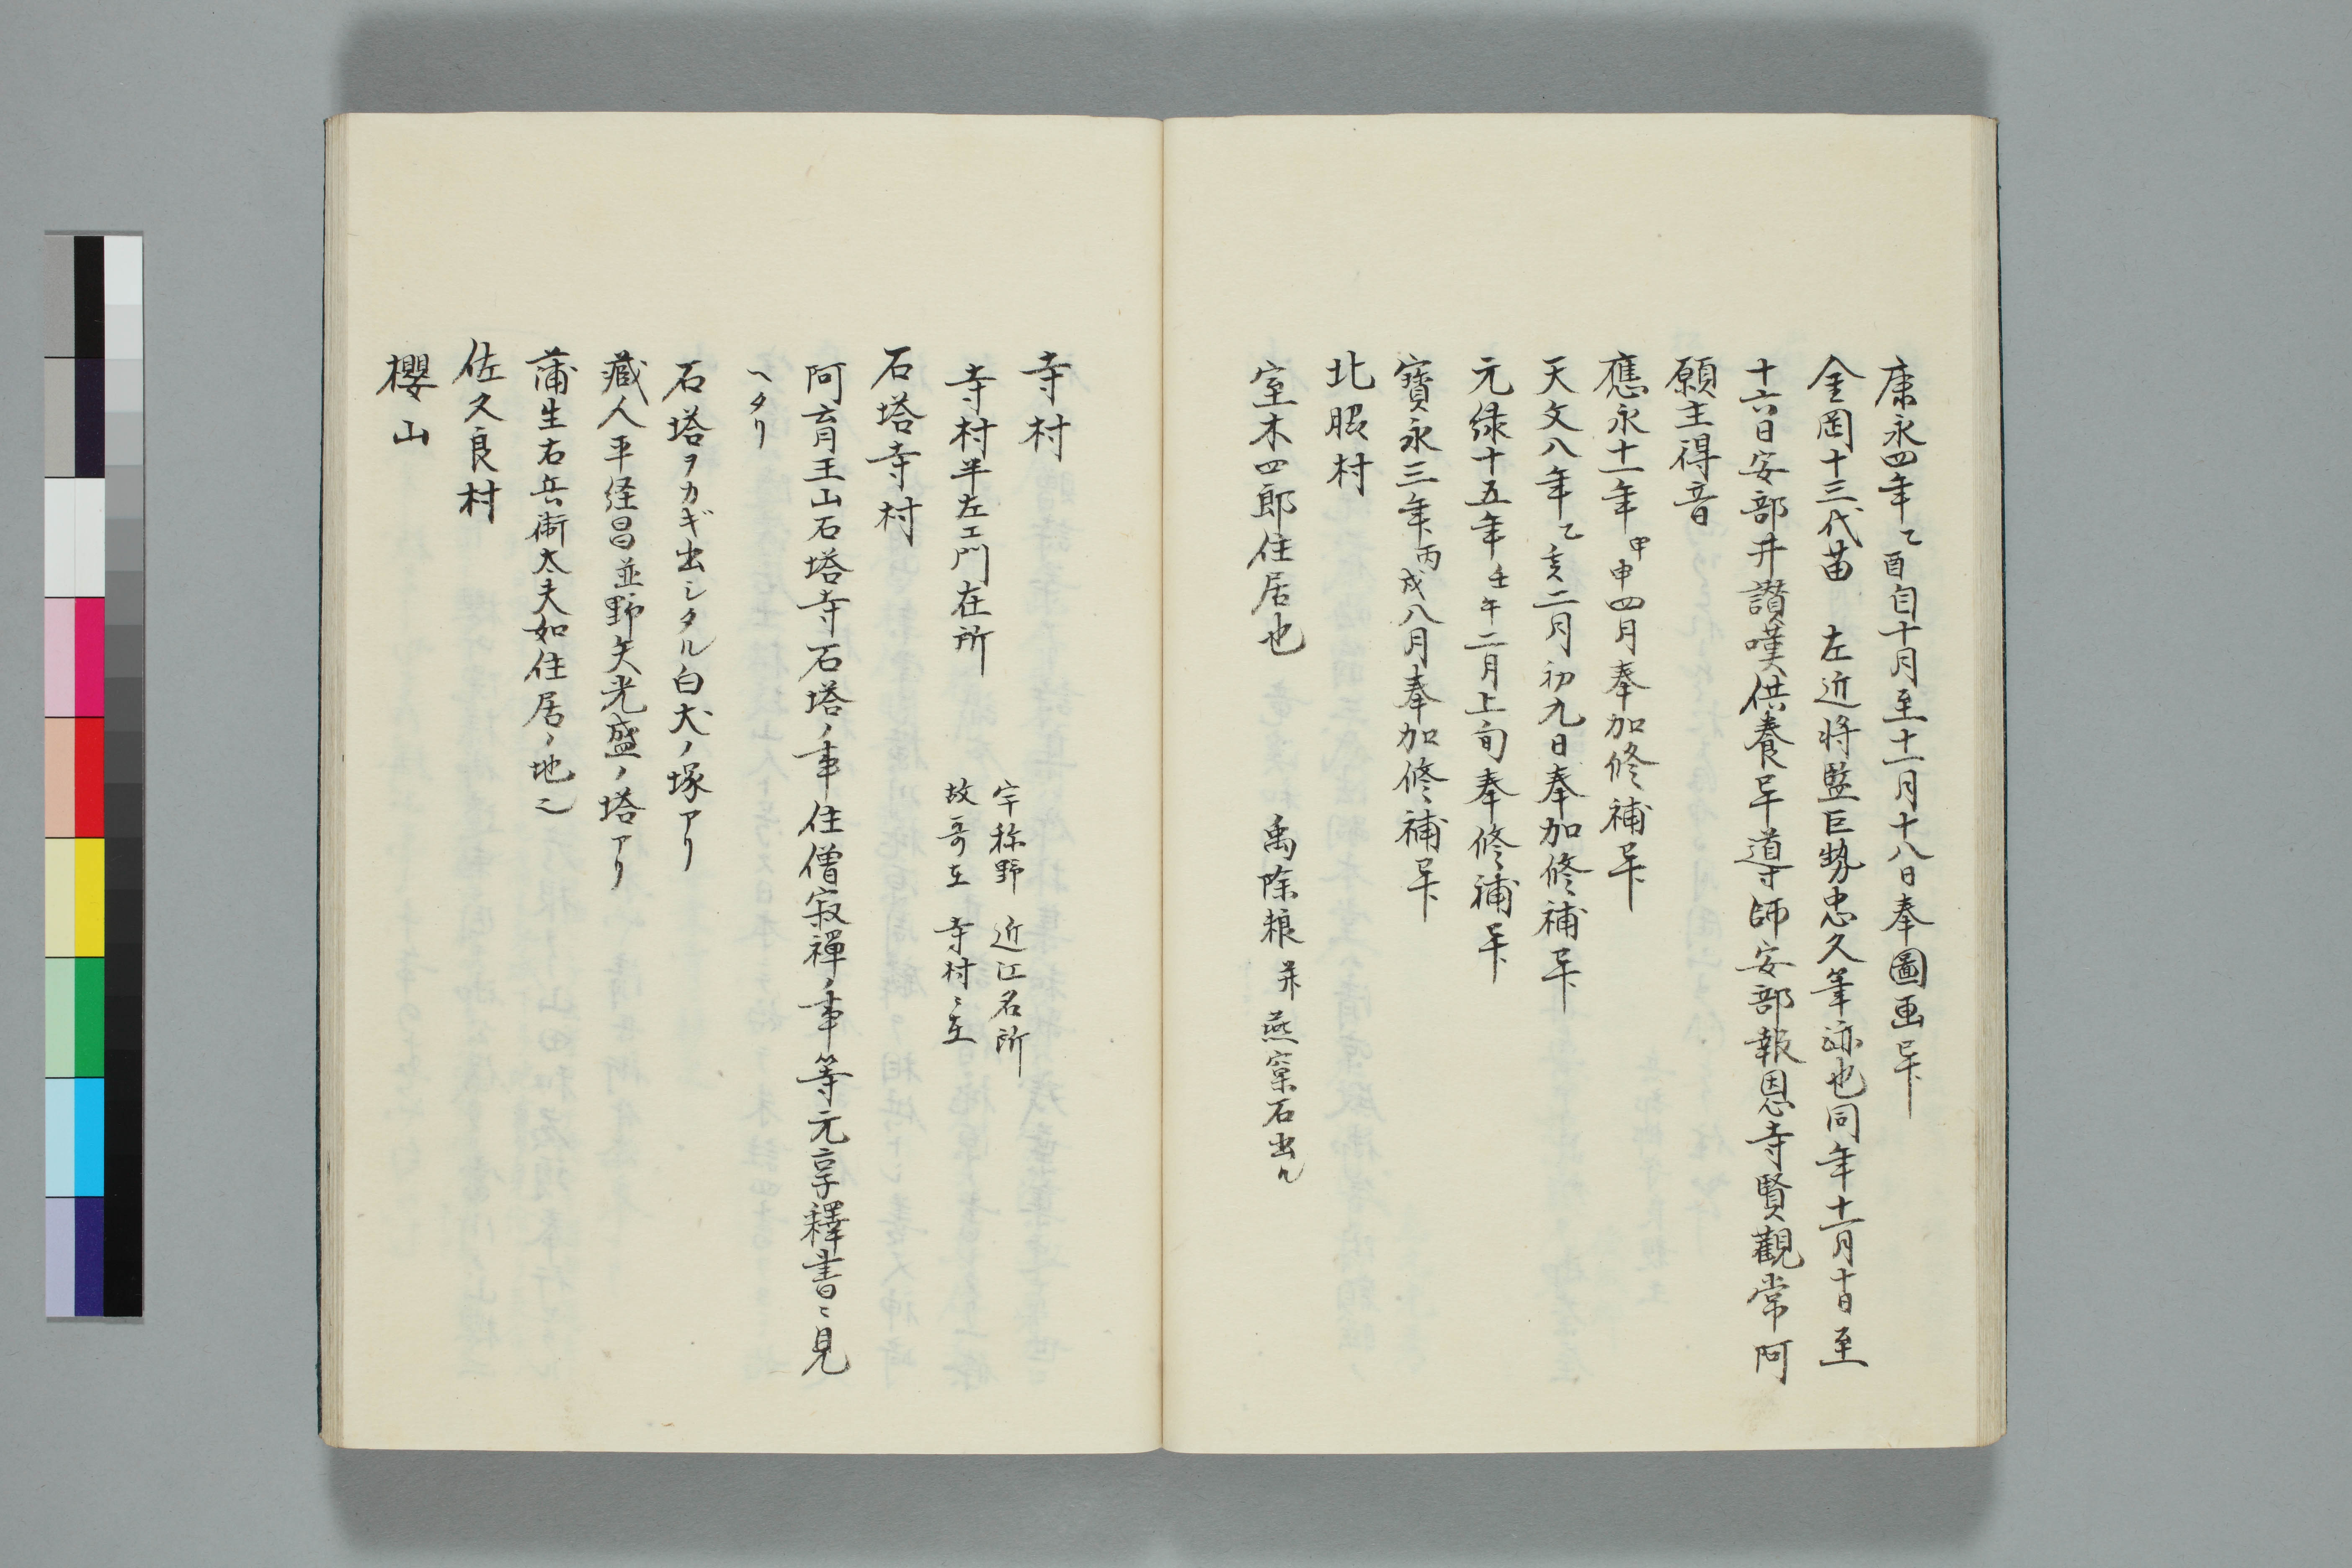 康永四年乙酉自十月至十一月十八日奉圖画畢
金岡十三代苗 左近将監巨勢忠久筆跡也同年十一月十日至
十六日安部井讃嘆供養畢導師安部報恩寺賢觀常阿
願主得音
應永十一年甲申四月奉加修補畢
天文八年乙亥二月初九日奉加修補畢
元緑十五年壬午二月上旬奉修補畢
寳永三年丙戌八月奉加修補畢
北脇村
室木四郎住居也 禹除粮并燕窠石出ル
寺村
寺村半左エ門在所
宇祢野 近江名所
故哥在 寺村ニ在
石塔寺村
阿育王山石塔寺石塔ノ事住僧寂禪ノ事等元享釋書ニ見
ヘタリ
石塔ヲカギ出シタル白犬ノ塚アリ
蔵人平経昌並野矢光盛ノ塔アリ
蒲生右兵衛太夫如住居ノ地也
佐久良村
櫻山